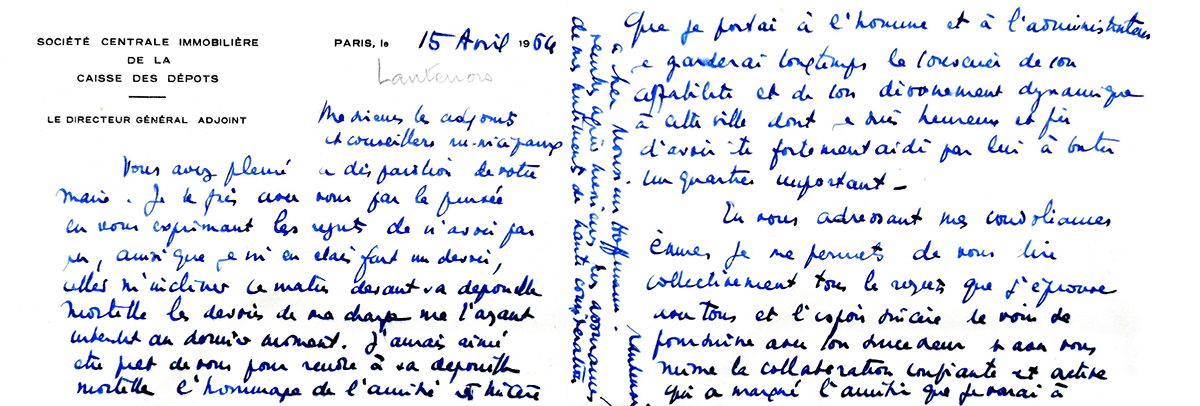 SOCIÉTÉ CENTRALE IMMOBILIÈRE
DE LA
CAISSE DES DÉPOTS
LE DIRECTEUR GÉNÉRAL ADJOINT
PARIS, le 15 Avril 1964
Messieurs les adjoints
et conseillers municipaux
Vous avez pleuré la disparition de votre
maire. Je le fais avec vous par la pensée
en vous exprimant les regrets de n'avoir pas
pu, ainsi que je m'en étais fait un devoir,
aller m'incliner ce matin devant sa dépouille
mortelle les devoirs de ma charge me l'ayant
interdit au dernier moment. J'aurais aimé
être près de vous pour rendre à sa dépouille
mortelle l'hommage de l'amitié sincère
Que je portai à l'homme et à l'administrateur
je garderai longtemps le souvenir de son
affabilité et de son dévouement dynamique
à cette ville dont je suis heureux et fier
d'avoir été fortement aidé par lui à bâtir
un quartier important -
En vous adressant mes condoléances
émues je me permets de vous dire
collectivement tous le regrets que j'éprouve
avec tous et l'espoir sincère de voir se
poursuivre avec son successeur et avec vous
même la collaboration confiante et active
qui a marqué l'amitié que je vouai à
cher Monsieur Hoffmann.
Veuillez agréer messieurs les assurances
de mes sentiments de haute considération